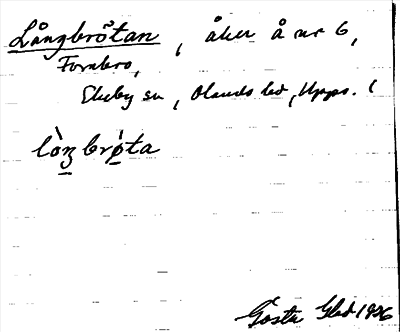 Långbrötan, åker å nr 6,
Fornbro,
Ekeby sn, Olands hd, Upps. l
lòŋbrò̤ta
Gösta Gled 1926